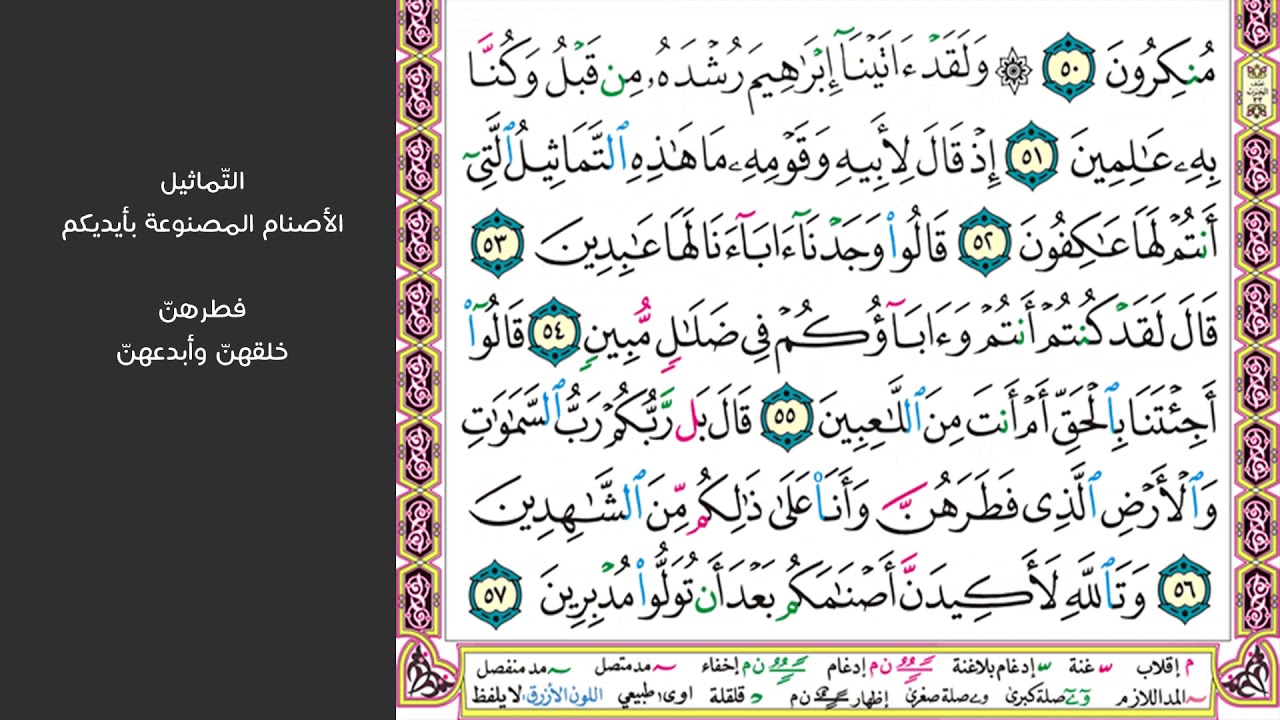 التّماثيل
الأصنام المصنوعة بأيديكم
فطرهنّ
خلقهنّ وأبدعهنّ
مُنكِرُونَ ٥٠ ۞ وَلَقَدْ ءَاتَيْنَآ إِبْرَٰهِيمَ رُشْدَهُۥ مِن قَبْلُ وَكُنَّا
بِهِۦ عَـٰلِمِينَ ٥١ إِذْ قَالَ لِأَبِيهِ وَقَوْمِهِۦ مَا هَـٰذِهِ ٱلتَّمَاثِيلُ ٱلَّتِىٓ
أَنتُمْ لَهَا عَـٰكِفُونَ ٥٢ قَالُوا۟ وَجَدْنَآ ءَابَآءَنَا لَهَا عَـٰبِدِينَ ٥٣
قَالَ لَقَدْ كُنتُمْ أَنتُمْ وَءَابَآؤُكُمْ فِى ضَلَـٰلٍ مُّبِينٍ ٥٤ قَالُوٓا۟
أَجِئْتَنَا بِٱلْحَقِّ أَمْ أَنتَ مِنَ ٱللَّـٰعِبِينَ ٥٥ قَالَ بَل رَّبُّكُمْ رَبُّ ٱلسَّمَـٰوَٰتِ
وَٱلْأَرْضِ ٱلَّذِى فَطَرَهُنَّ وَأَنَا۠ عَلَىٰ ذَٰلِكُم مِّنَ ٱلشَّـٰهِدِينَ
٥٦ وَتَٱللَّهِ لَأَكِيدَنَّ أَصْنَـٰمَكُم بَعْدَ أَن تُوَلُّوا۟ مُدْبِرِينَ ٥٧
م إقلاب غنة إدغام بلاغنة ن م إدغام ن م إخفاء مد متصل مد منفصل
المد اللازم صلة كبرى صلة صغرى إظهار ن م قلقلة اوى طبيعي اللون الأزرق: لا يلفظ